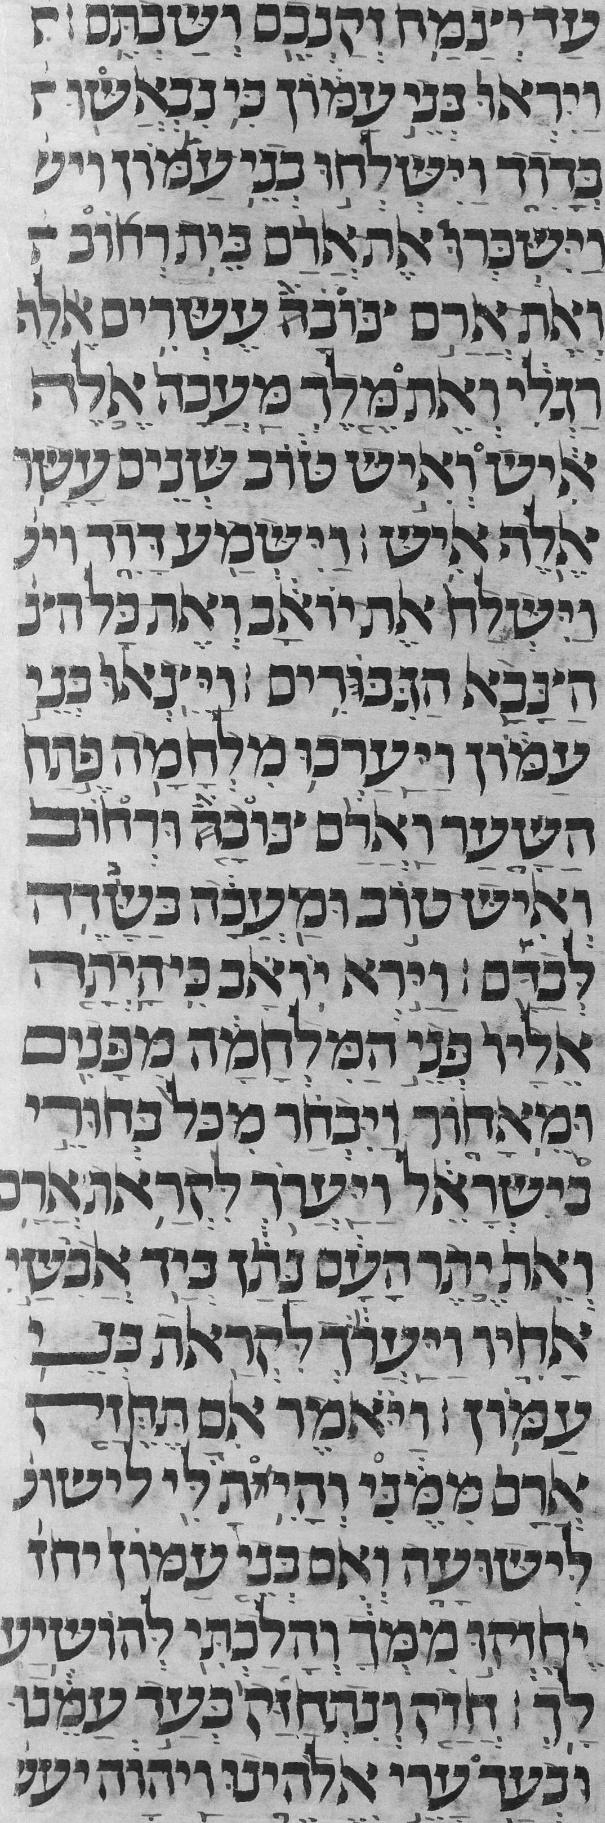 עד יצמח זקנכם ושבתם :
ויראו בני עמון כי נבאשו
בדוד וישלחו בני עמון ויש
וישכרו את ארם בית רחוב
ואת ארם צובה עשרים אלף
רגלי ואת מלך מעכה אלף
איש ואיש טוב שנים עשר
אלף איש : וישמע דוד
וישלח את יואב ואת כל הצ
הצבא הגבורים : ויצאו בני
עמון ויערכו מלחמה פתח
השער וארם צובה ורחוב
ואיש טוב ומעכה בשדה
לבדם : וירא יואב כי היתה
אליו פני המלחמה מפנים
ומאחור ויבחר מכל בחורי
בישראל ויערך לקראת ארם
ואת יתר העם נתן ביד אבשי
אחיו ויערך לקראת בני
עמון : ויאמר אם תחזק
ארם ממני והית לי לישוע
לישועה ואם בני עמון יחז
יחזקו ממך והלכתי להושיע
לך : חזק ונתחזק בעד עמנו
ובעד ערי אלהינו ויהוה יעש